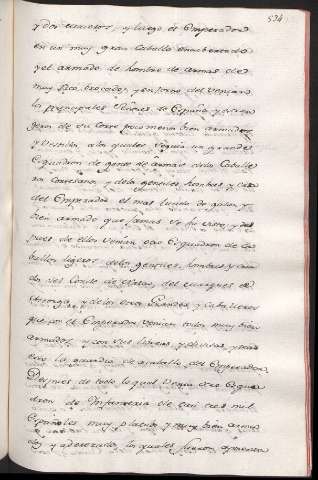 524
y dos maceros, y luego el Emperador
en un muy gran Caballo encubertado
y el armado de hombre de armas de
muy rico brocado, y en torno del venian
los principales Señores de España y
de su Corte muy bien armados,
y vestidos, a los quales seguia un grande
Esquadron de gente de armas de la Caballe
ria Cortesana y de la gentiles hombres y
del Emperador el mas lucido de galas y
bien armado que jamas se ha visto, y des
pues de ellos venian otro Esquadron de Ca
ballos ligeros de los gentiles hombres y
del Conde de del marques de
Astorga, y de los otros Grandes, y Caballeros
que con el Emperador venian todos muy bien
armados, y con sus libreas, y divisas, y
la guardia de acaballo del Emperador
Despues de todo lo qual venia otro Esqua
dron de Infanteria de casi tres mil
Españoles muy platicos y muy bien arma
dos y aderezados, los quales fueron